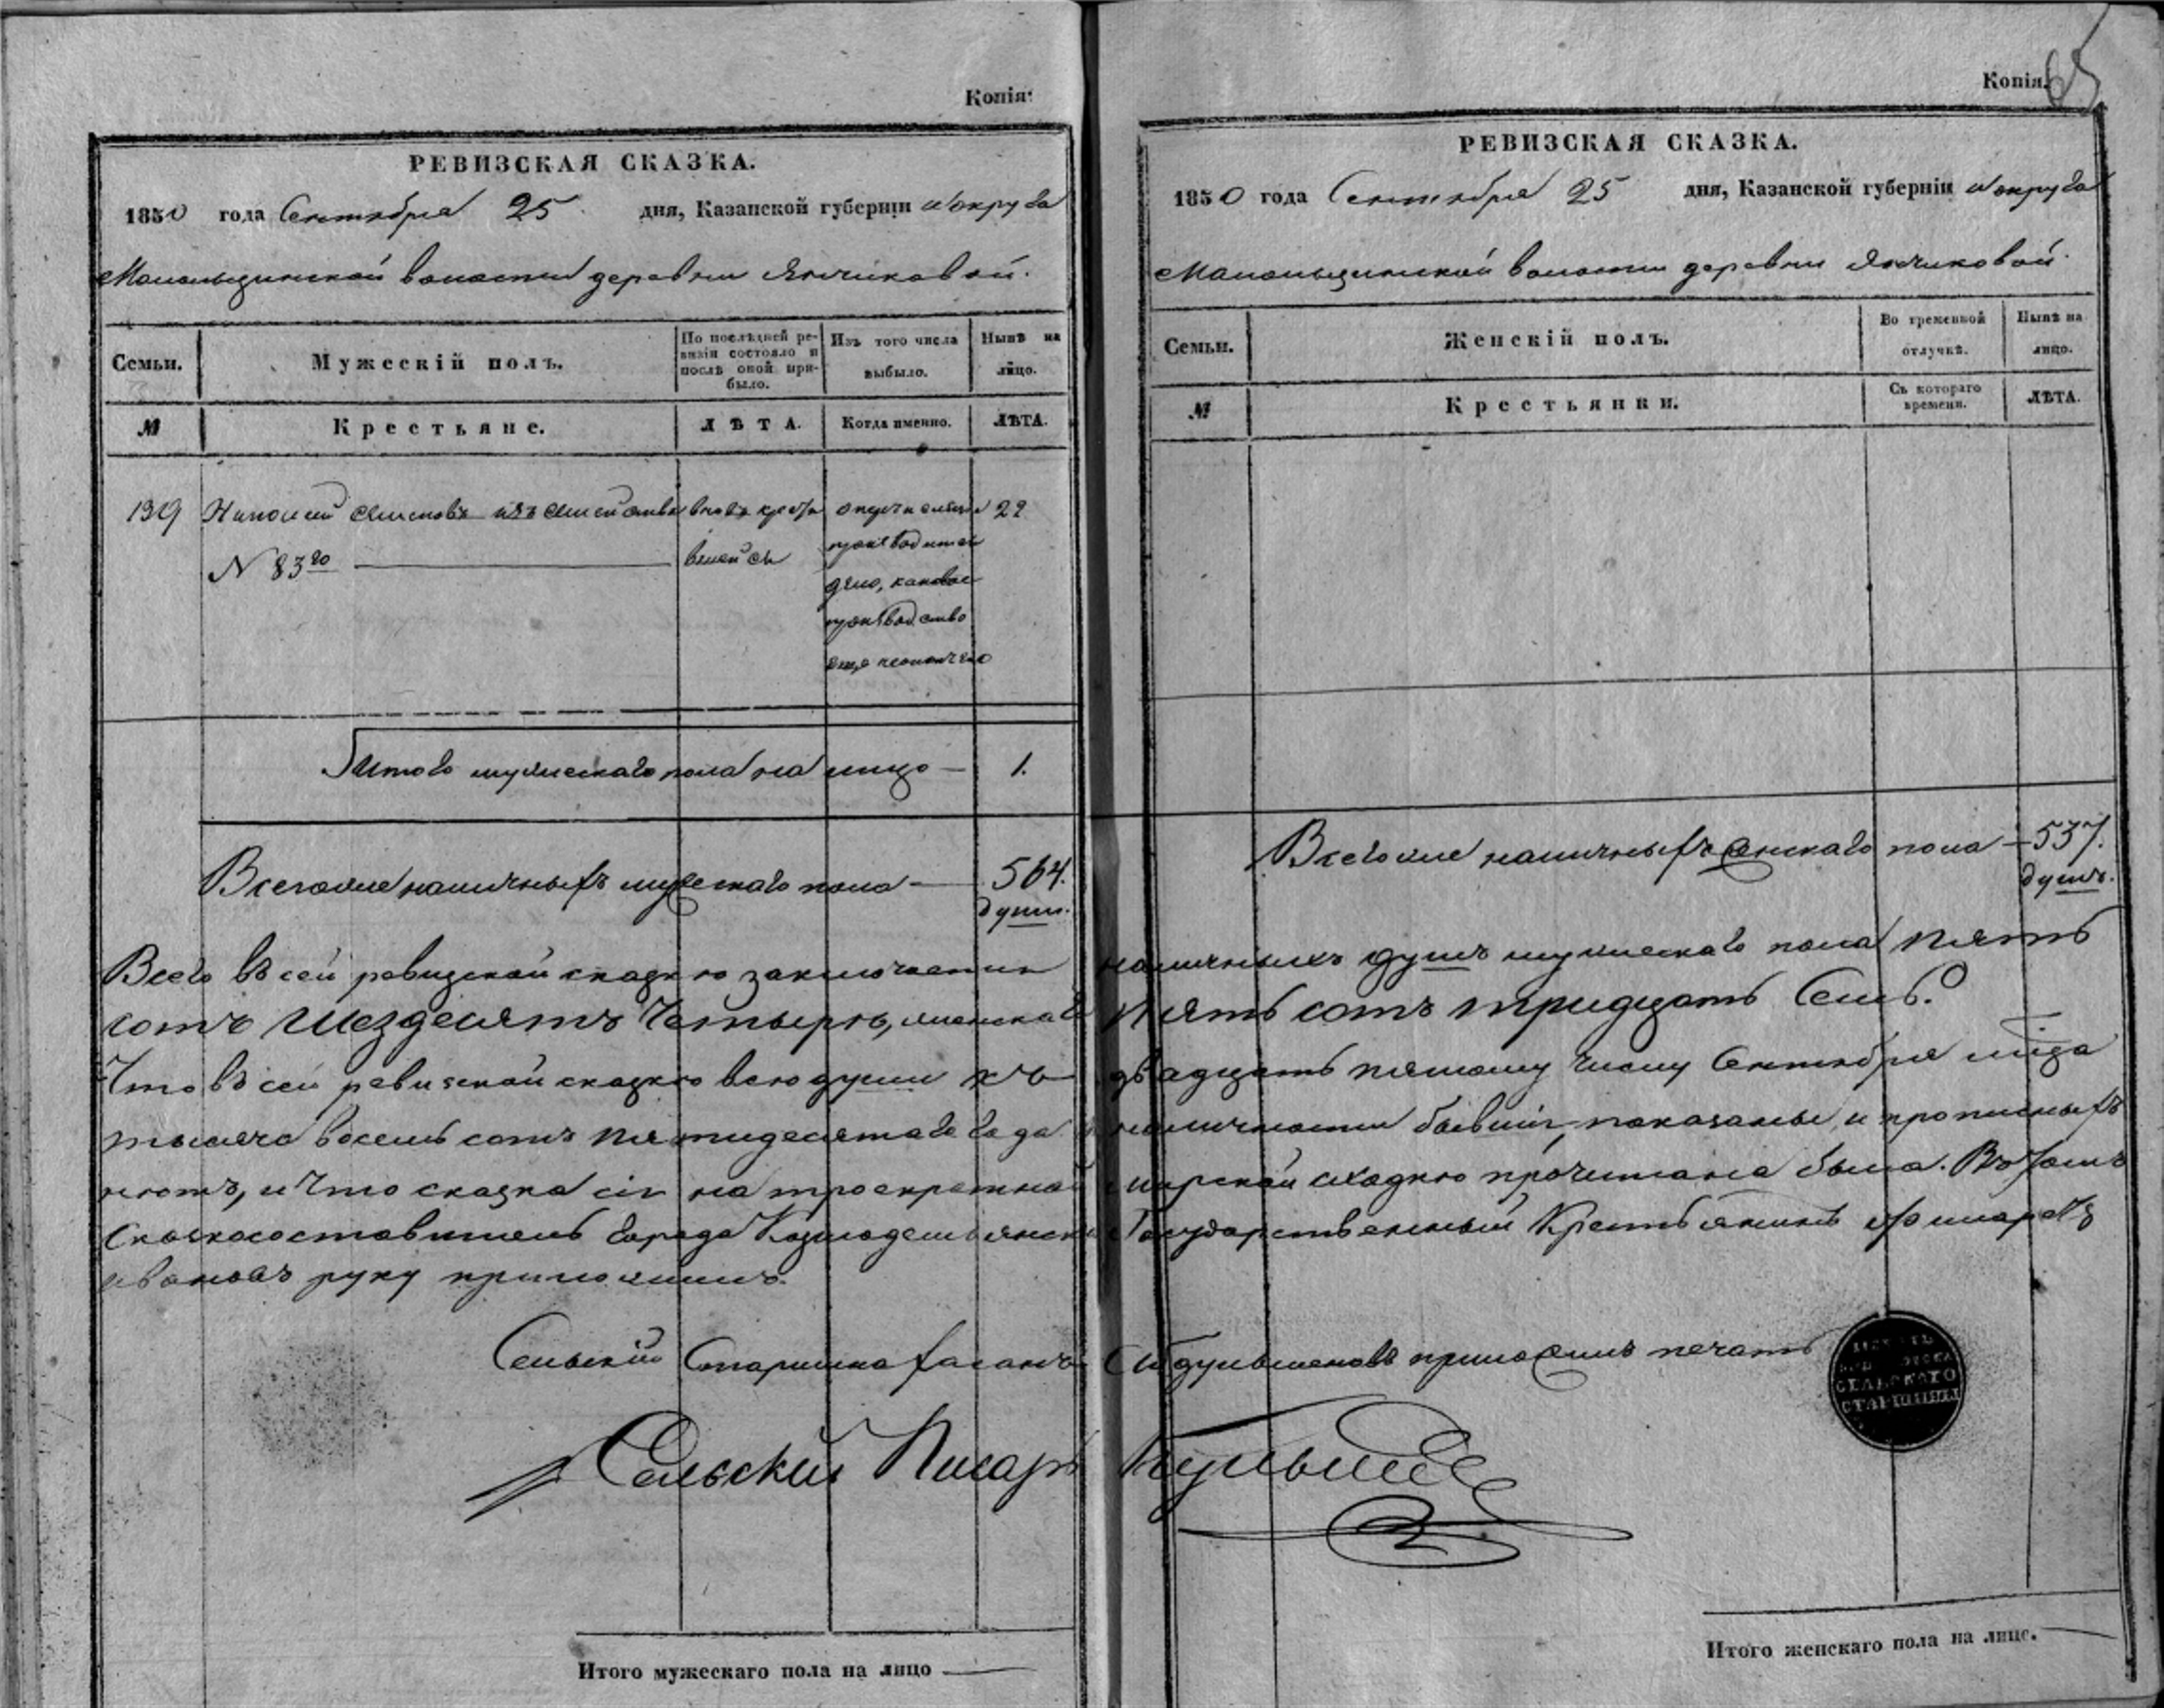 Копія:
РЕВИЗСКАЯ СКАЗКА.
1850 года Сентября 25 дня, Казанской губерніи и округа
волости деревни Янчиковой.
Семьи.
Мужескій полъ.
По послѣдней ревизіи состояло и послѣ оной прибыло.
Изъ того числа выбыло.
Нынѣ на лицо.
№
Крестьяне.
ЛѢТА.
Когда именно.
ЛѢТА.
139 Семеновъ изъ семейства
N 83го
вновь
о
производится
дѣло, каковое
производство
еще неокончено
Итого мужескаго пола на лицо — 1.
Всегоже наличныхъ мужескаго пола — 564.
души.
Копія.
65
РЕВИЗСКАЯ СКАЗКА.
1850 года Сентября 25 дня, Казанской губерніи и округа
волости деревни Янчиковой.
Семьи.
Женскій полъ.
Во временной отлучкѣ.
Нынѣ на лицо.
№
Крестьянки.
Съ котораго времени.
ЛѢТА.
Всегоже наличныхъ женскаго пола — 537.
душъ.
Всего въ сей ревизской сказкѣ заключается наличныхъ душъ мужескаго пола пять
сотъ шездесятъ четыре, женскаго пять сотъ тридцать семь.
Что въ сей ревизской сказкѣ всѣ души къ двадцать пятому числу Сентября
тысяча восемь сотъ пятидесятаго года въ наличности бывшія, показаны, и прописныхъ
нѣтъ, и что сказка сія на троекратной мирской сходкѣ прочитана была. Въ томъ
Сказкосоставитель города Козмодемьянска Государственный Крестьянинъ
Ивановъ руку приложилъ.
Сельскій Старшина приложилъ печать
СЕЛЬСКАГО
СТАРШИНЫ
Сельскій Писарь
Итого мужескаго пола на лицо
Итого женскаго пола на лицо.